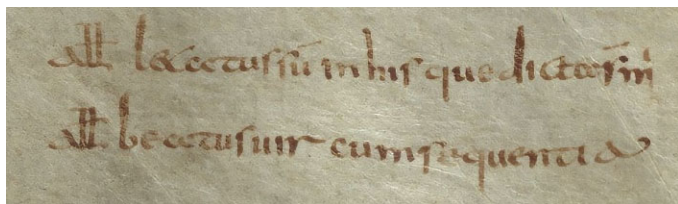 all lætatus sū in his que dicta s̄ m̍
all beatus uir cum sequentia